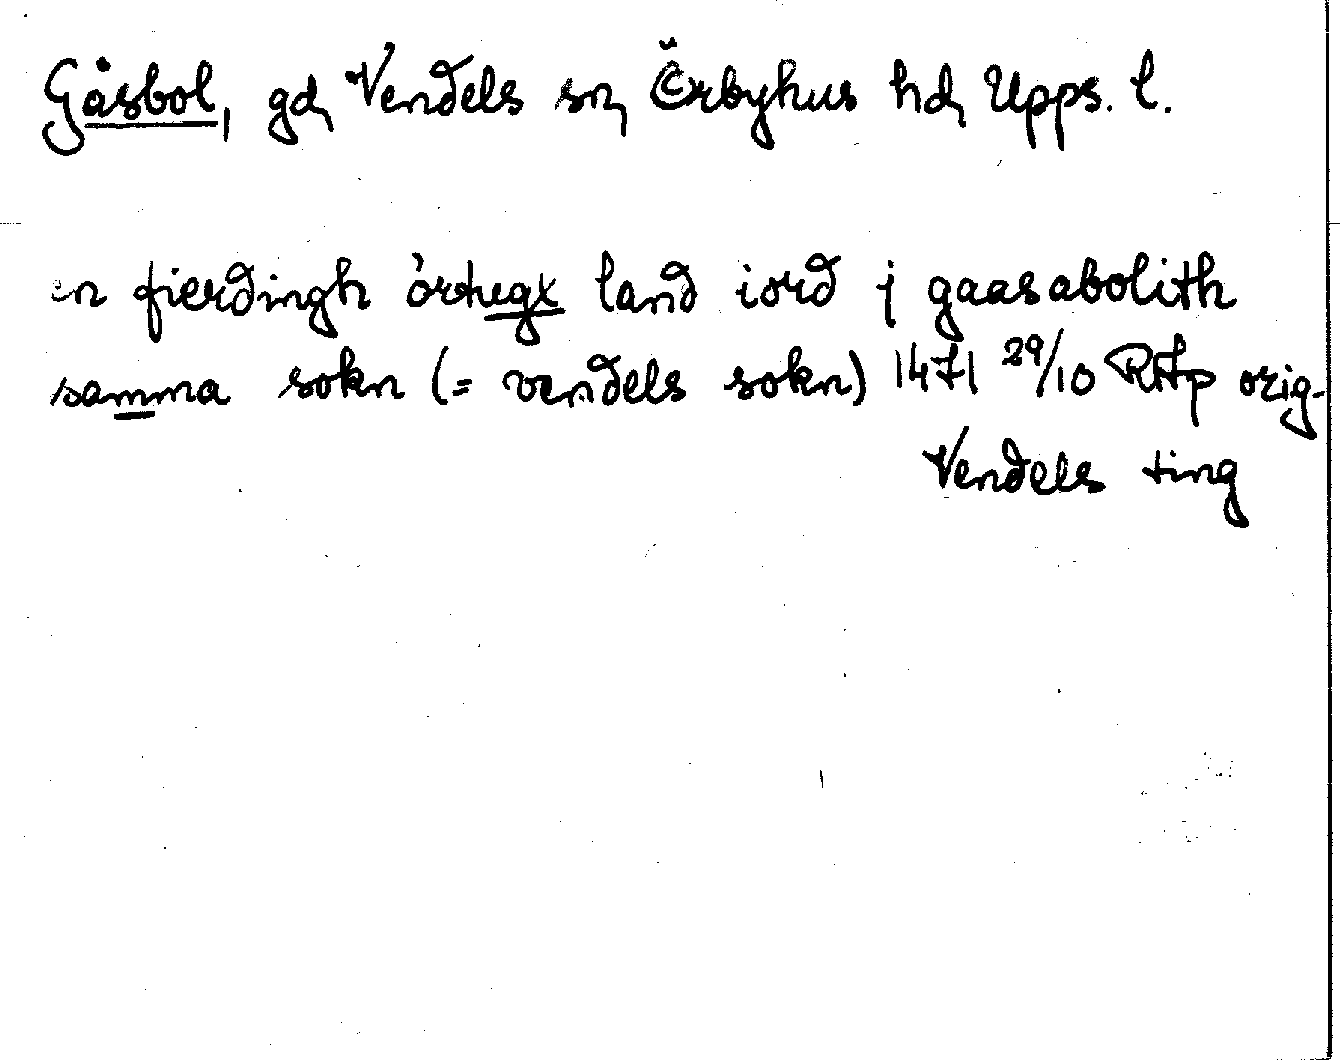 Gåsbol, gd, Vendels sn, Örbyhus hd, Upps. l.
en fierdingh örtugx land iord j gaasabolith
samma sokn (= vendels sokn) 1471 29/10 RAp orig.
Vendels ting